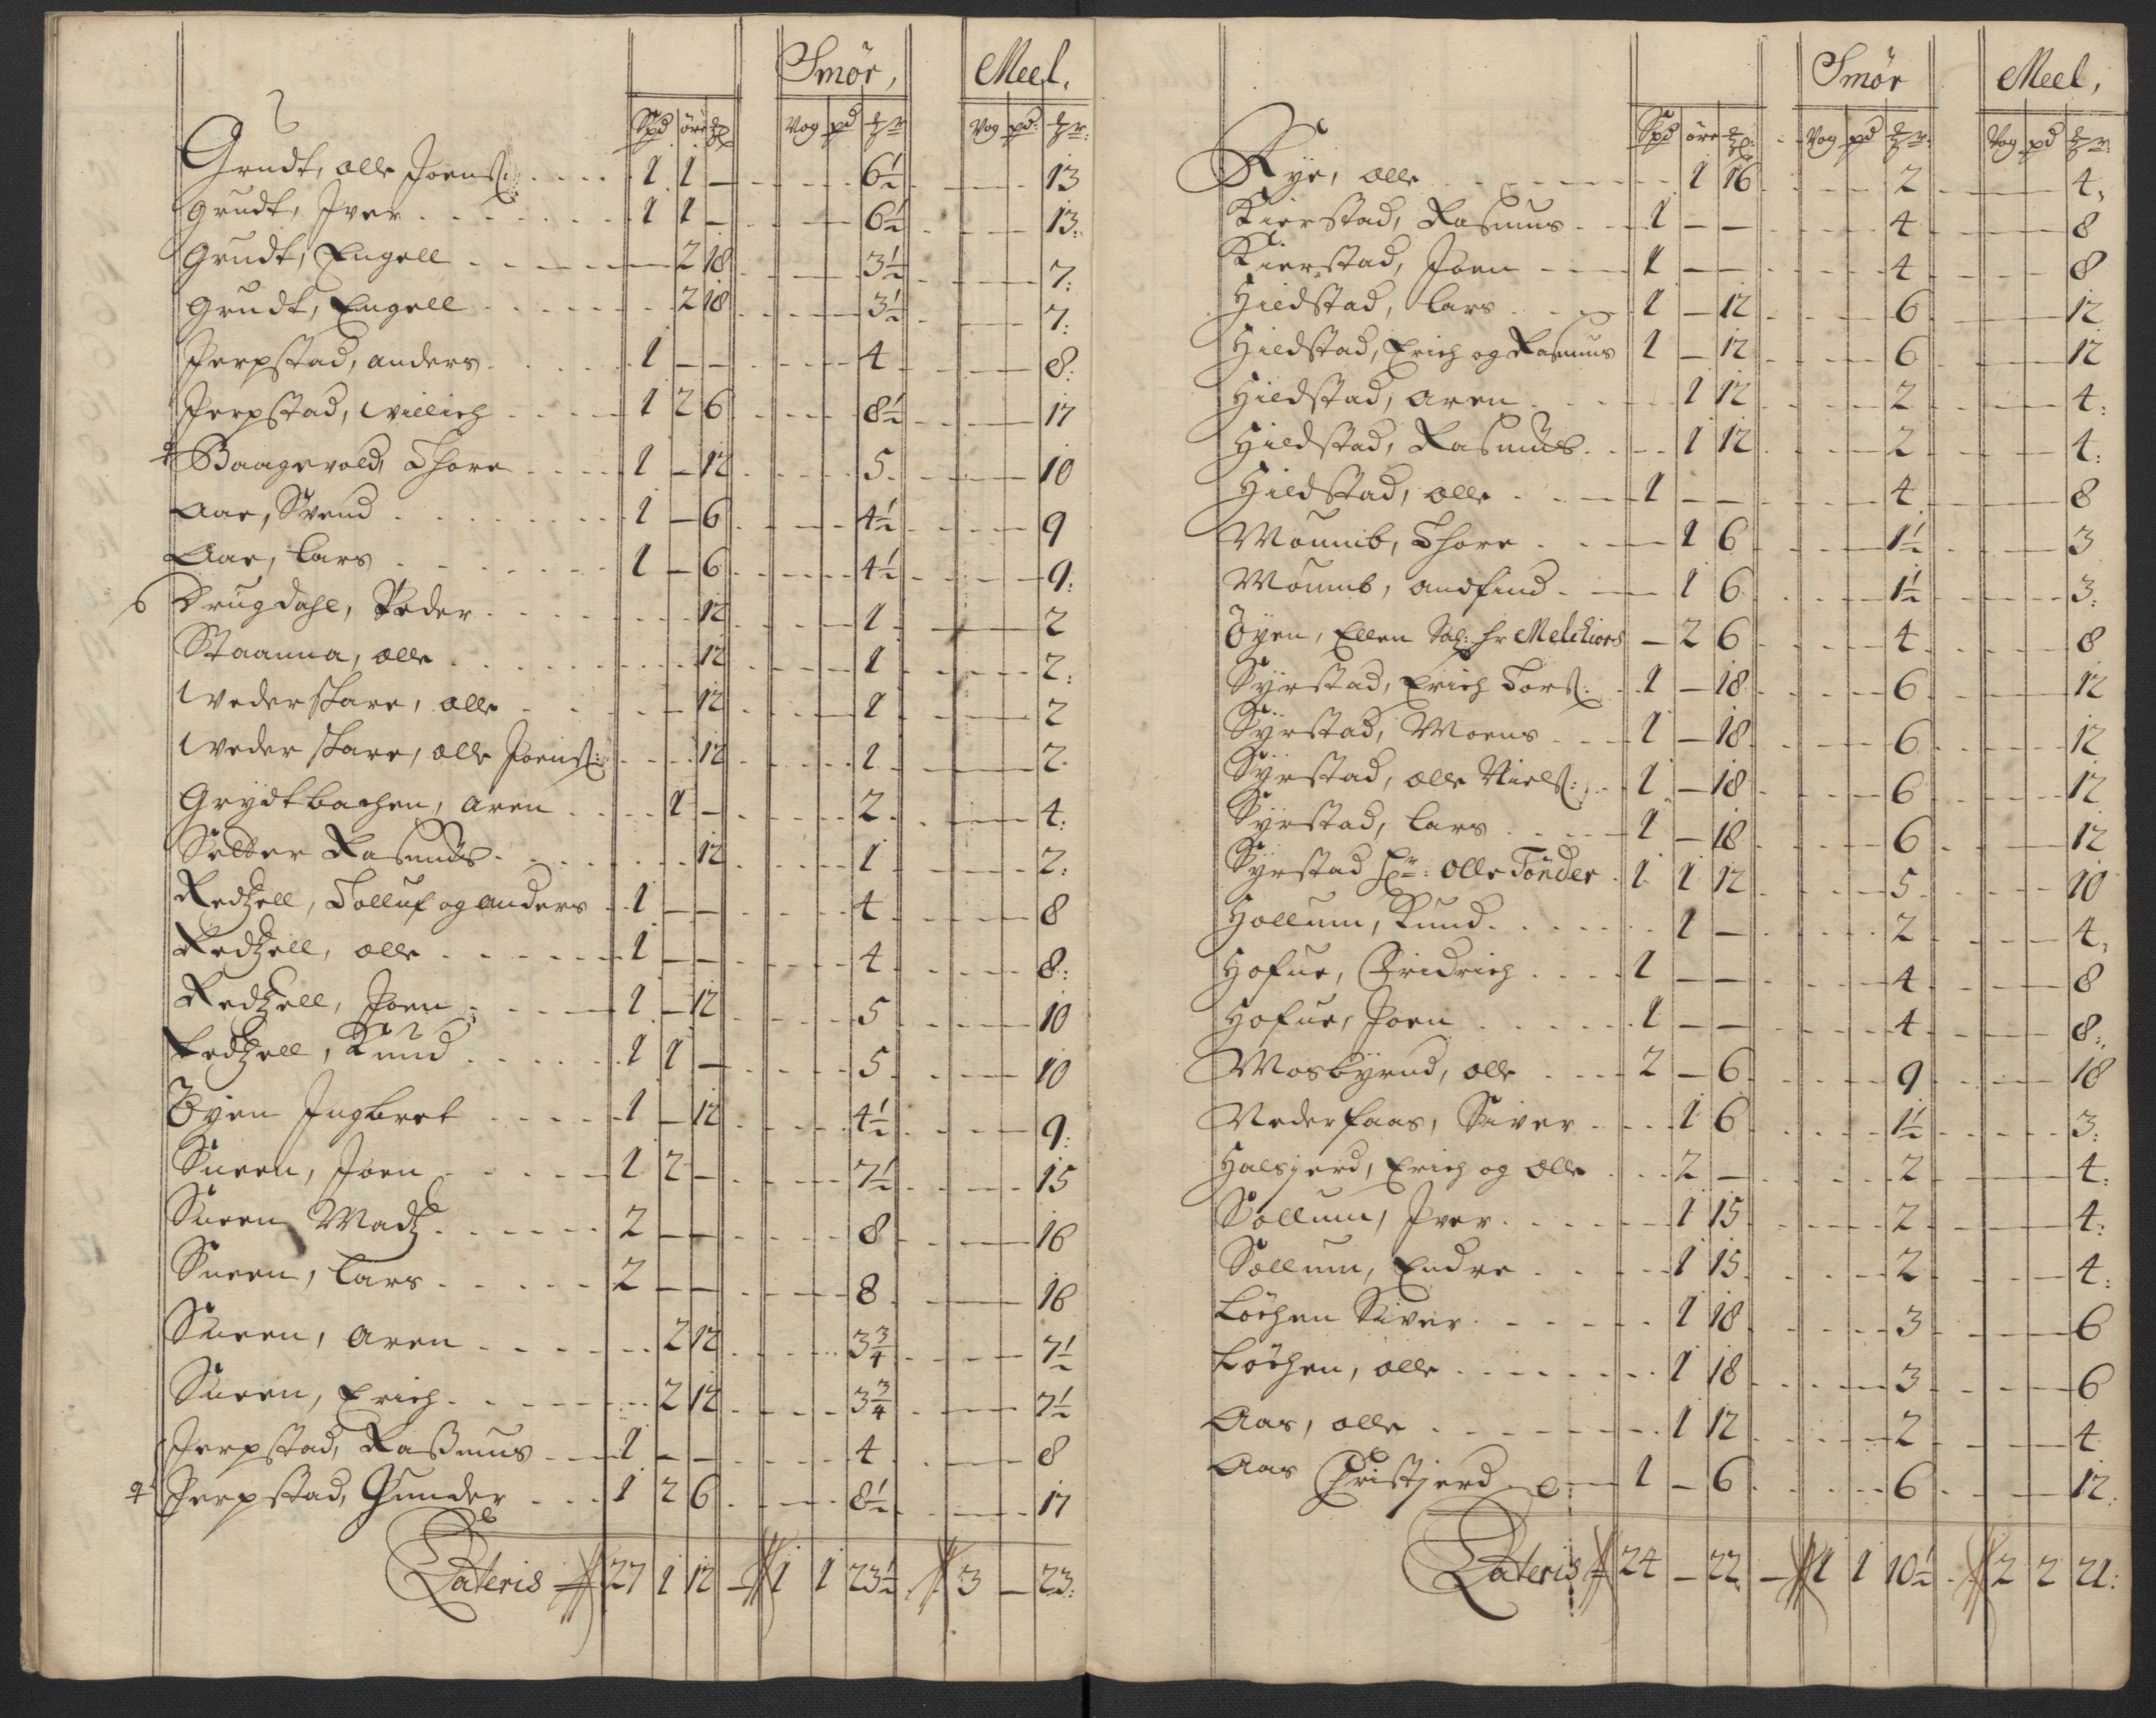 Smör, Meel,
Spd öre Vog pd Vog pd:
Grudt, Olle Joens: 1 1 — 6½ 13
Grudt, Iver 1 1 — 6½ 13:
Grudt, Engell — 2 18 3½ 7:
Grudt, Engell 2 18 3½ 7:
Jerpstad, Anders 1 — — 4 8:
Jerpstad, Willich 1 2 6 8½ 17
Baagevold, Thore 1 — 12 5 10
Aae, Svend 1 — 6 4½ 9
Aae, Lars 1 — 6 4½ 9:
Drugdahl, Peder 12 1 2
Staanna, Olle 12 1 2:
Wederskare, Olle 12 1 2
Wederskare, Olle Joens: 12 1 2
Grydtbachen, Aren 1 — 2 4:
Rasmus 12 1 2:
Redzell, Tolluf og Anders 1 — — 4 8
Redzell, Olle 1 — — 4 8:
Redzell, Joen 1 — 12 5 10
Redzell, Knud 1 1 — 5 10
Öyen Ingbret 1 — 12 4½ 9:
Sneen, Joen 1 2 — 7½ 15
Sneen Madz 2 — — 8 16
Sneen, Lars 2 — — 8 16
Sneen, Aren 2 12 3¾ 7½
Sneen, Erich 2 12 3¾ 7½
Jerpstad, Rasmus 1 — — 4 8
Jerpstad, Gunder 1 2 6 8½ 17
Lateris 27 1 12 — 1 1 23½ 3 — 23:
Smör Meel,
Spd öre Vog pd Vog pd
Rye, Olle 1 16 2 4:
Kierstad, Rasmus 1 — — 4 8
Kierstad, Joen 1 — — 4 8
Hildstad, Lars 1 — 12 6 12
Hildstad, Erich og Rasmus 1 — 12 6 12
Hildstad, Aren 1 12 2 4:
Hildstad, Rasmus 1 12 2 4:
Hildstad, Olle 1 — — 4 8
Thore 1 6 1½ 3
Andfind 1 6 1½ 3:
Öyen, Ellen Sal: hr Melchiors — 2 6 4 8
Syrstad, Erich Tors: 1 — 18 6 12
Syrstad, Moens 1 — 18 6 12
Syrstad, Olle Niels: 1 — 18 6 12
Syrstad, Lars 1 — 18 6 12
Syrstad Hr: Olle Tönder 1 1 12 5 10
Hollum, Knud 1 — 2 4,
Hofue, Fridrich 1 — — 4 8
Hofue, Joen 1 — — 4 8:
Mosbyrnd, Olle 2 — 6 9 18
Nederfaas, Siver 1 6 1½ 3:
Halsjerd, Erich og Olle 2 — 2 4:
Sollum, Iver 1 15 2 4:
Sollum, Endre 1 15 2 4:
Löchen Siver 1 18 3 6
Löchen, Olle 1 18 3 6
Aas, Olle 1 12 2 4
Aas Christjerd 1 — 6 6 12:
Lateris 24 — 22 — 1 1 10½ 2 2 21: